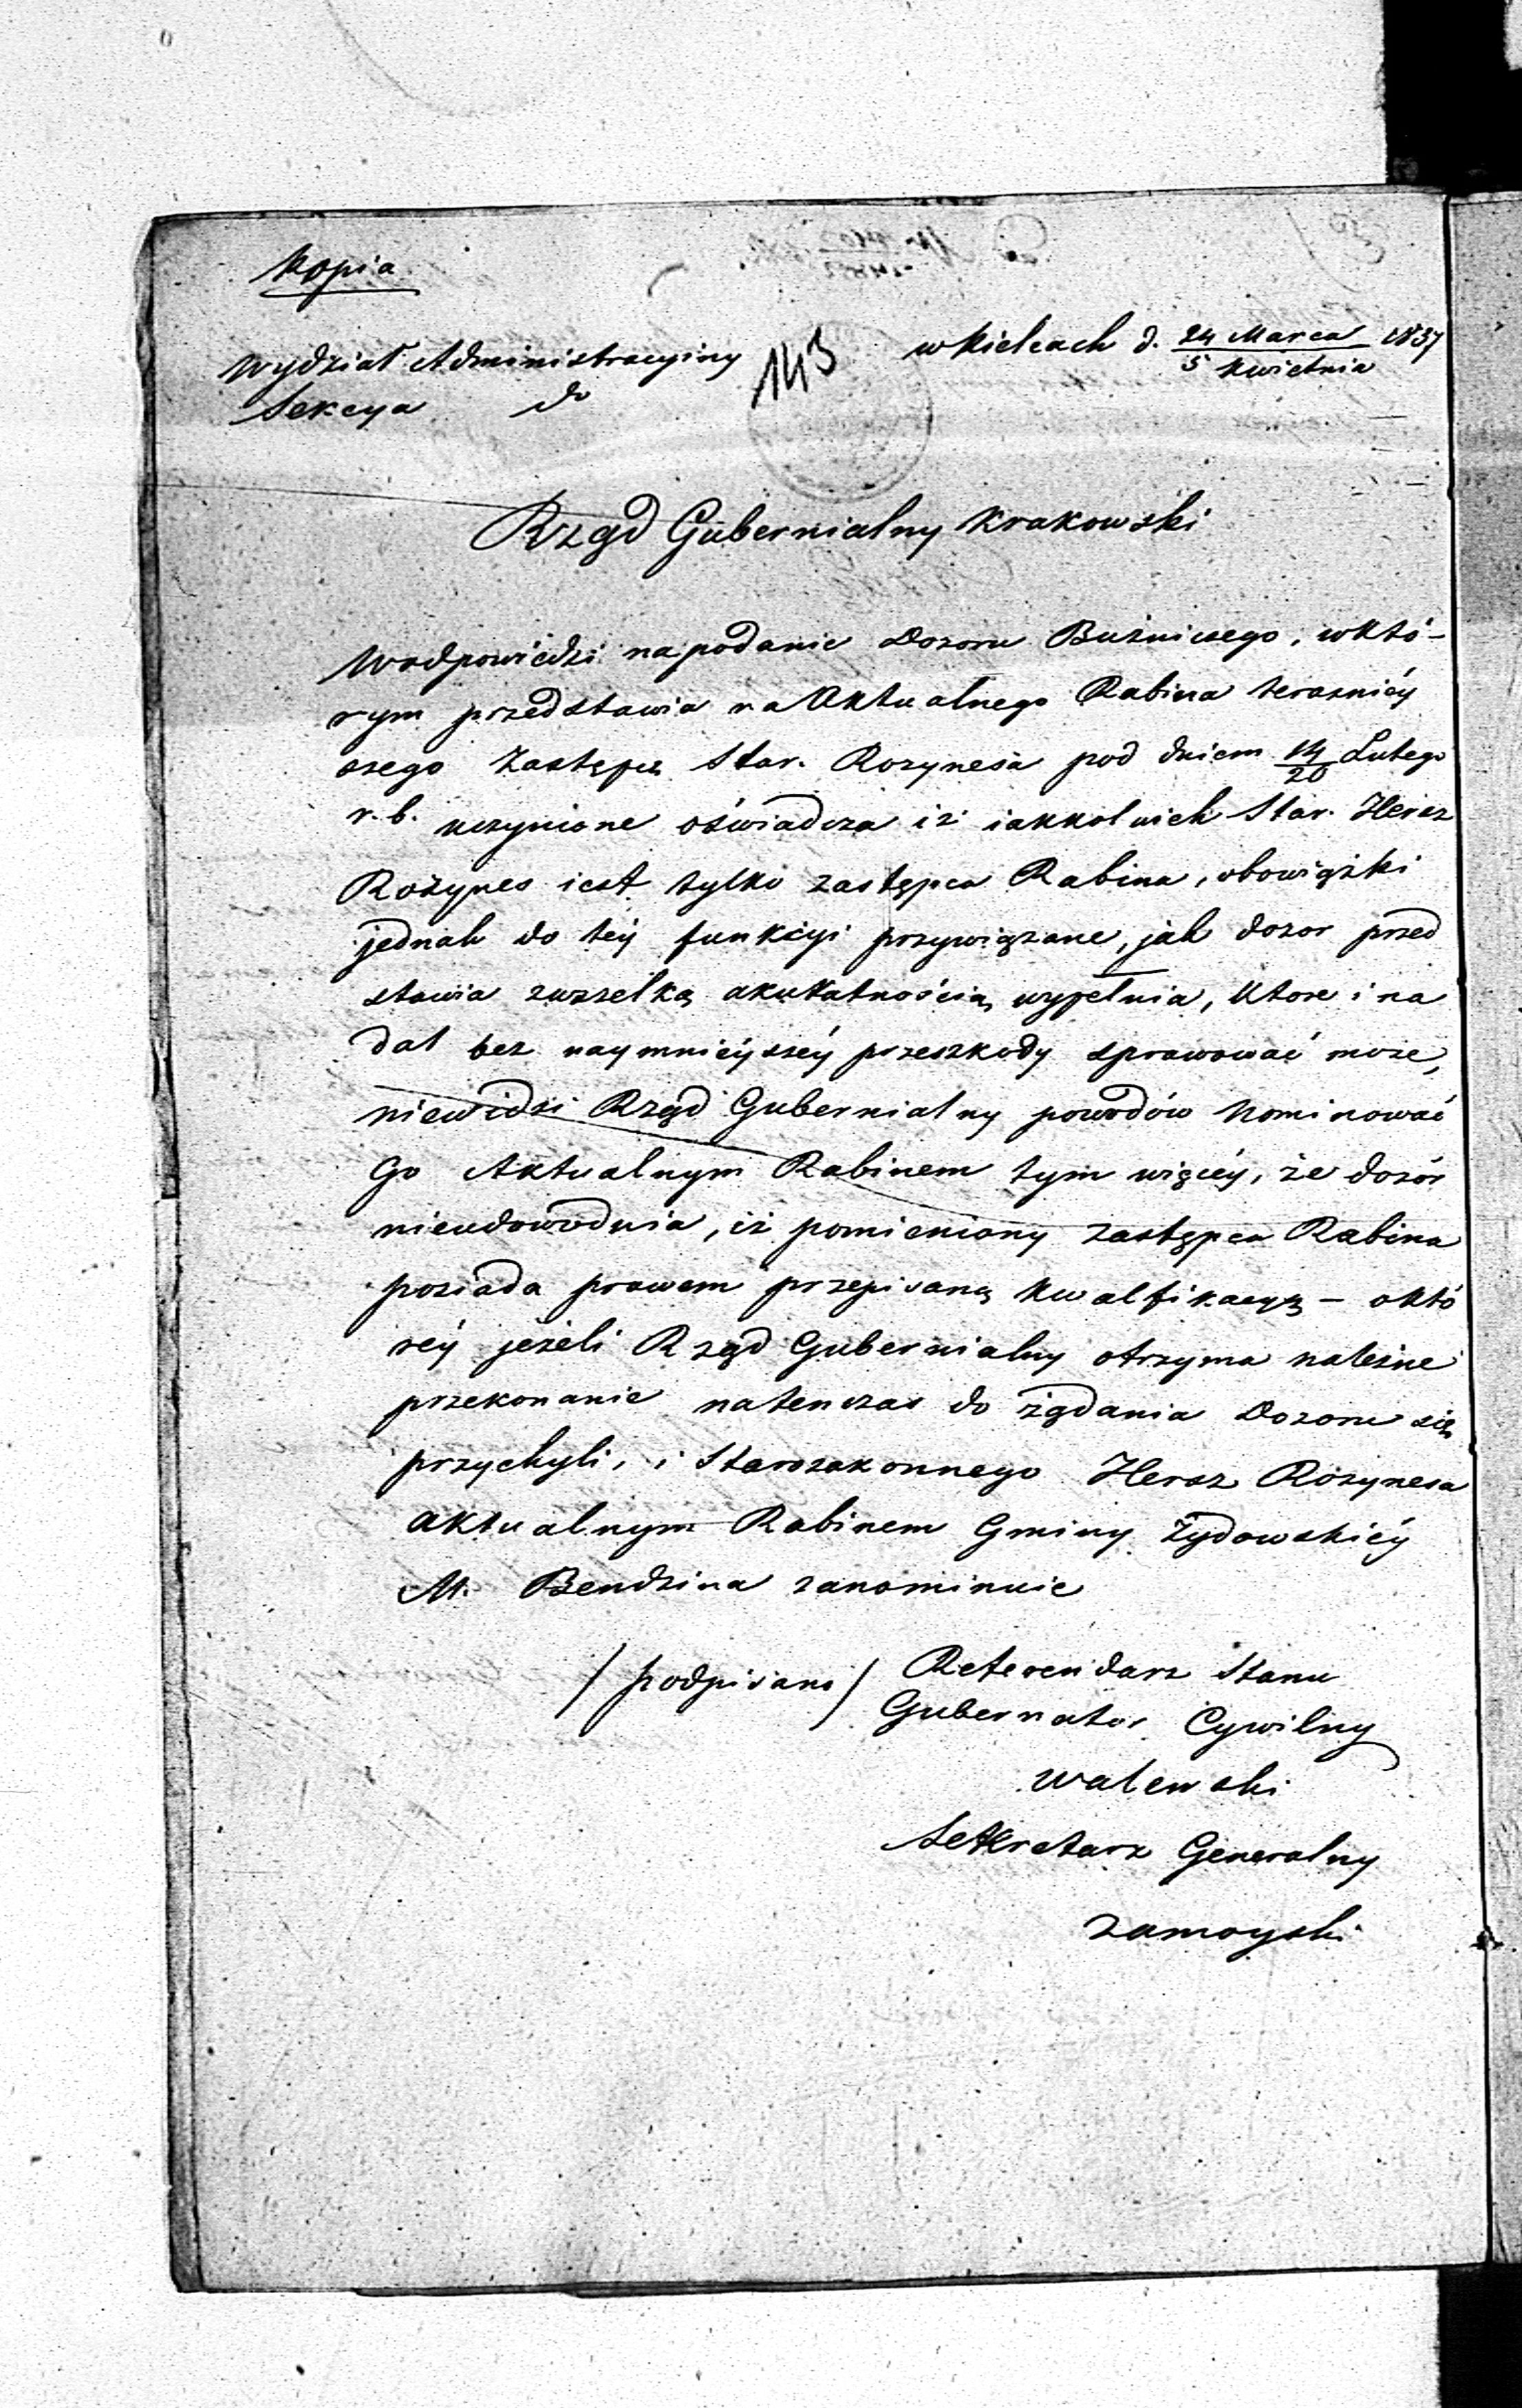 Kopia
w Kielcach d. 24 Marca 1837
5 Kwietnia
Wydział Administracyiny
143
Sekcya do
Rząd Gubernialny Krakowski
W odpowiedzi na podanie Dozoru Bużniczego, w któ-
rym przedstawia na Aktualnego Rabina terazniéy
szego Zastępcę Star. Rozynesa pod dniem 14/20 Lutego
r.b. uczynione oświadcza iż iakkolwiek Star. Hersz
Rożynes iest tylko zastępca Rabina, obowiązki
jednak do téy funkcyi przywiązane, jak dozor przed
stawia z wszelką akuratnością wypełnia, ktore i na
dal bez naymnieyszéy przeszkody sprawować może,
niewidzi Rząd Gubernialny powodów Nominować
Go Aktualnym Rabinem tym więcéy, że dozór
nieudowodnia, iż pomieniony zastępca Rabina
posiada prawem przepisaną Kwalfikacyą – o któ
réy jeżeli Rząd Gubernialny otrzyma należne
przekonanie natenczas do żądania Dozoru się
przychyli, i Starozakonnego Hersz Rozynesa
aktualnym Rabinem Gminy Żydowskiéy
M. Bendzina zanominuie
/podpisano/ Referendarz Stanu
Gubernator Cywilny
Walewski
Sekretarz Generalny
Zamoyski